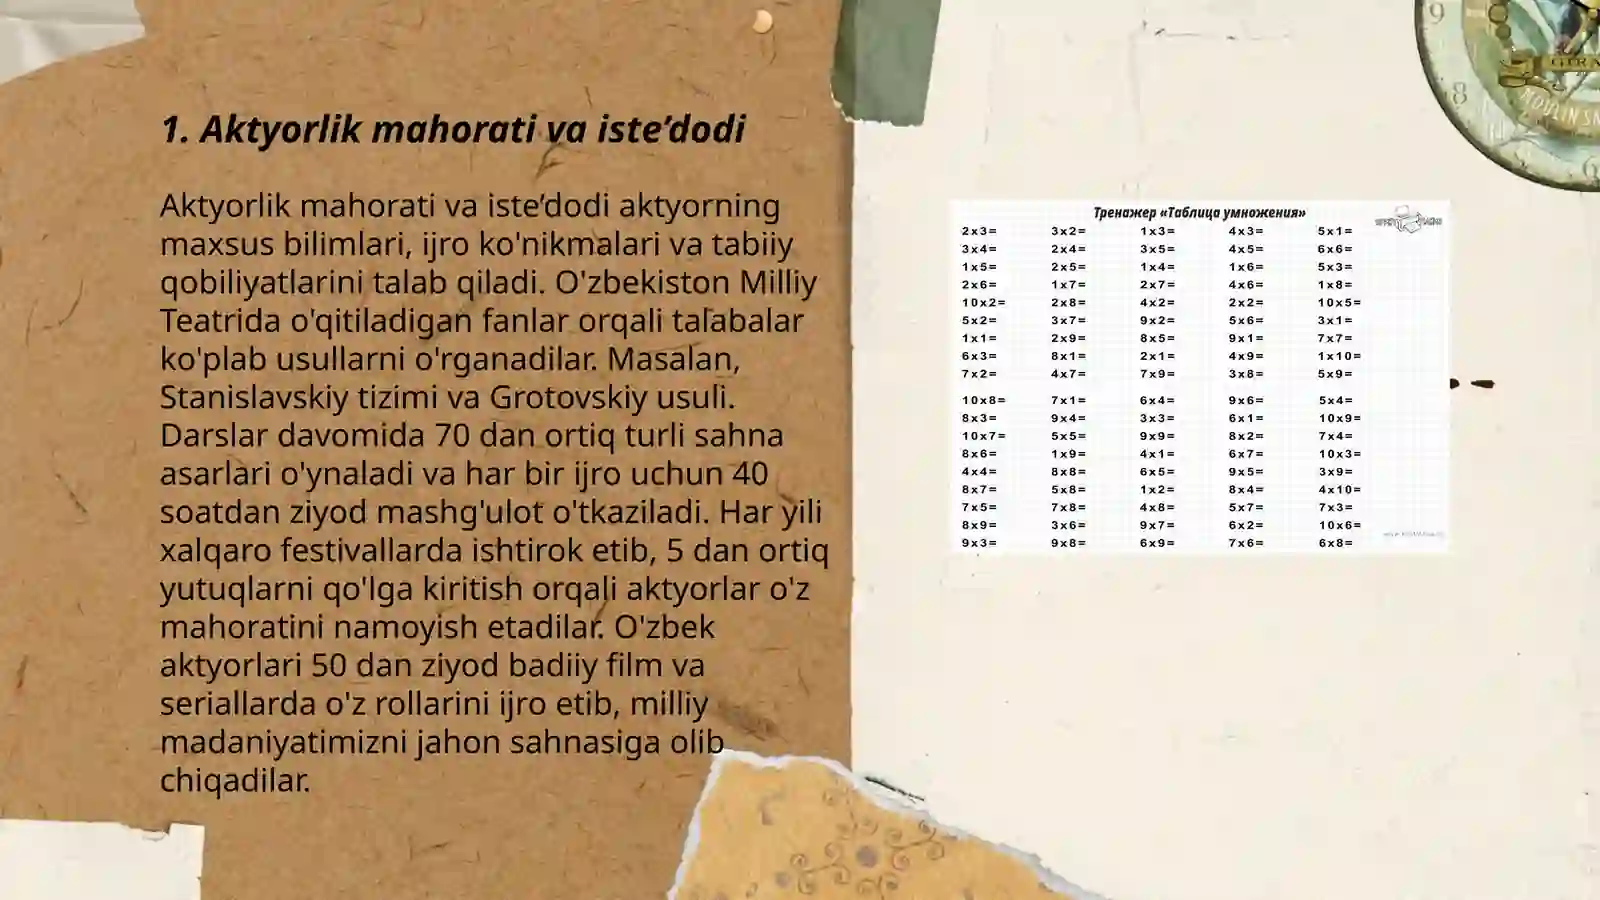 1. Aktyorlik mahorati va iste’dodi
Aktyorlik mahorati va iste’dodi aktyorning
maxsus bilimlari, ijro ko'nikmalari va tabiiy
qobiliyatlarini talab qiladi. O'zbekiston Milliy
Teatrida o'qitiladigan fanlar orqali talabalar
ko'plab usullarni o'rganadilar. Masalan,
Stanislavskiy tizimi va Grotovskiy usuli.
Darslar davomida 70 dan ortiq turli sahna
asarlari o'ynaladi va har bir ijro uchun 40
soatdan ziyod mashg'ulot o'tkaziladi. Har yili
xalqaro festivallarda ishtirok etib, 5 dan ortiq
yutuqlarni qo'lga kiritish orqali aktyorlar o'z
mahoratini namoyish etadilar. O'zbek
aktyorlari 50 dan ziyod badiiy film va
seriallarda o'z rollarini ijro etib, milliy
madaniyatimizni jahon sahnasiga olib
chiqadilar.
Тренажер «Таблица умножения»
2x3= 3x2= 1x3= 4x3= 5x1=
3x4= 2x4= 3x5= 4x5= 6x6=
1x5= 2x5= 1x4= 1x6= 5x3=
2x6= 1x7= 2x7= 4x6= 1x8=
10x2= 2x8= 4x2= 2x2= 10x5=
5x2= 3x7= 9x2= 5x6= 3x1=
1x1= 2x9= 8x5= 9x1= 7x7=
6x3= 8x1= 2x1= 4x9= 1x10=
7x2= 4x7= 7x9= 3x8= 5x9=
10x8= 7x1= 6x4= 9x6= 5x4=
8x3= 9x4= 3x3= 6x1= 10x9=
10x7= 5x5= 9x9= 8x2= 7x4=
8x6= 1x9= 4x1= 6x7= 10x3=
4x4= 8x8= 6x5= 9x5= 3x9=
8x7= 5x8= 1x2= 8x4= 4x10=
7x5= 7x8= 4x8= 5x7= 7x3=
8x9= 3x6= 9x7= 6x2= 10x6=
9x3= 9x8= 6x9= 7x6= 6x8=
9
8
6
MOULIN